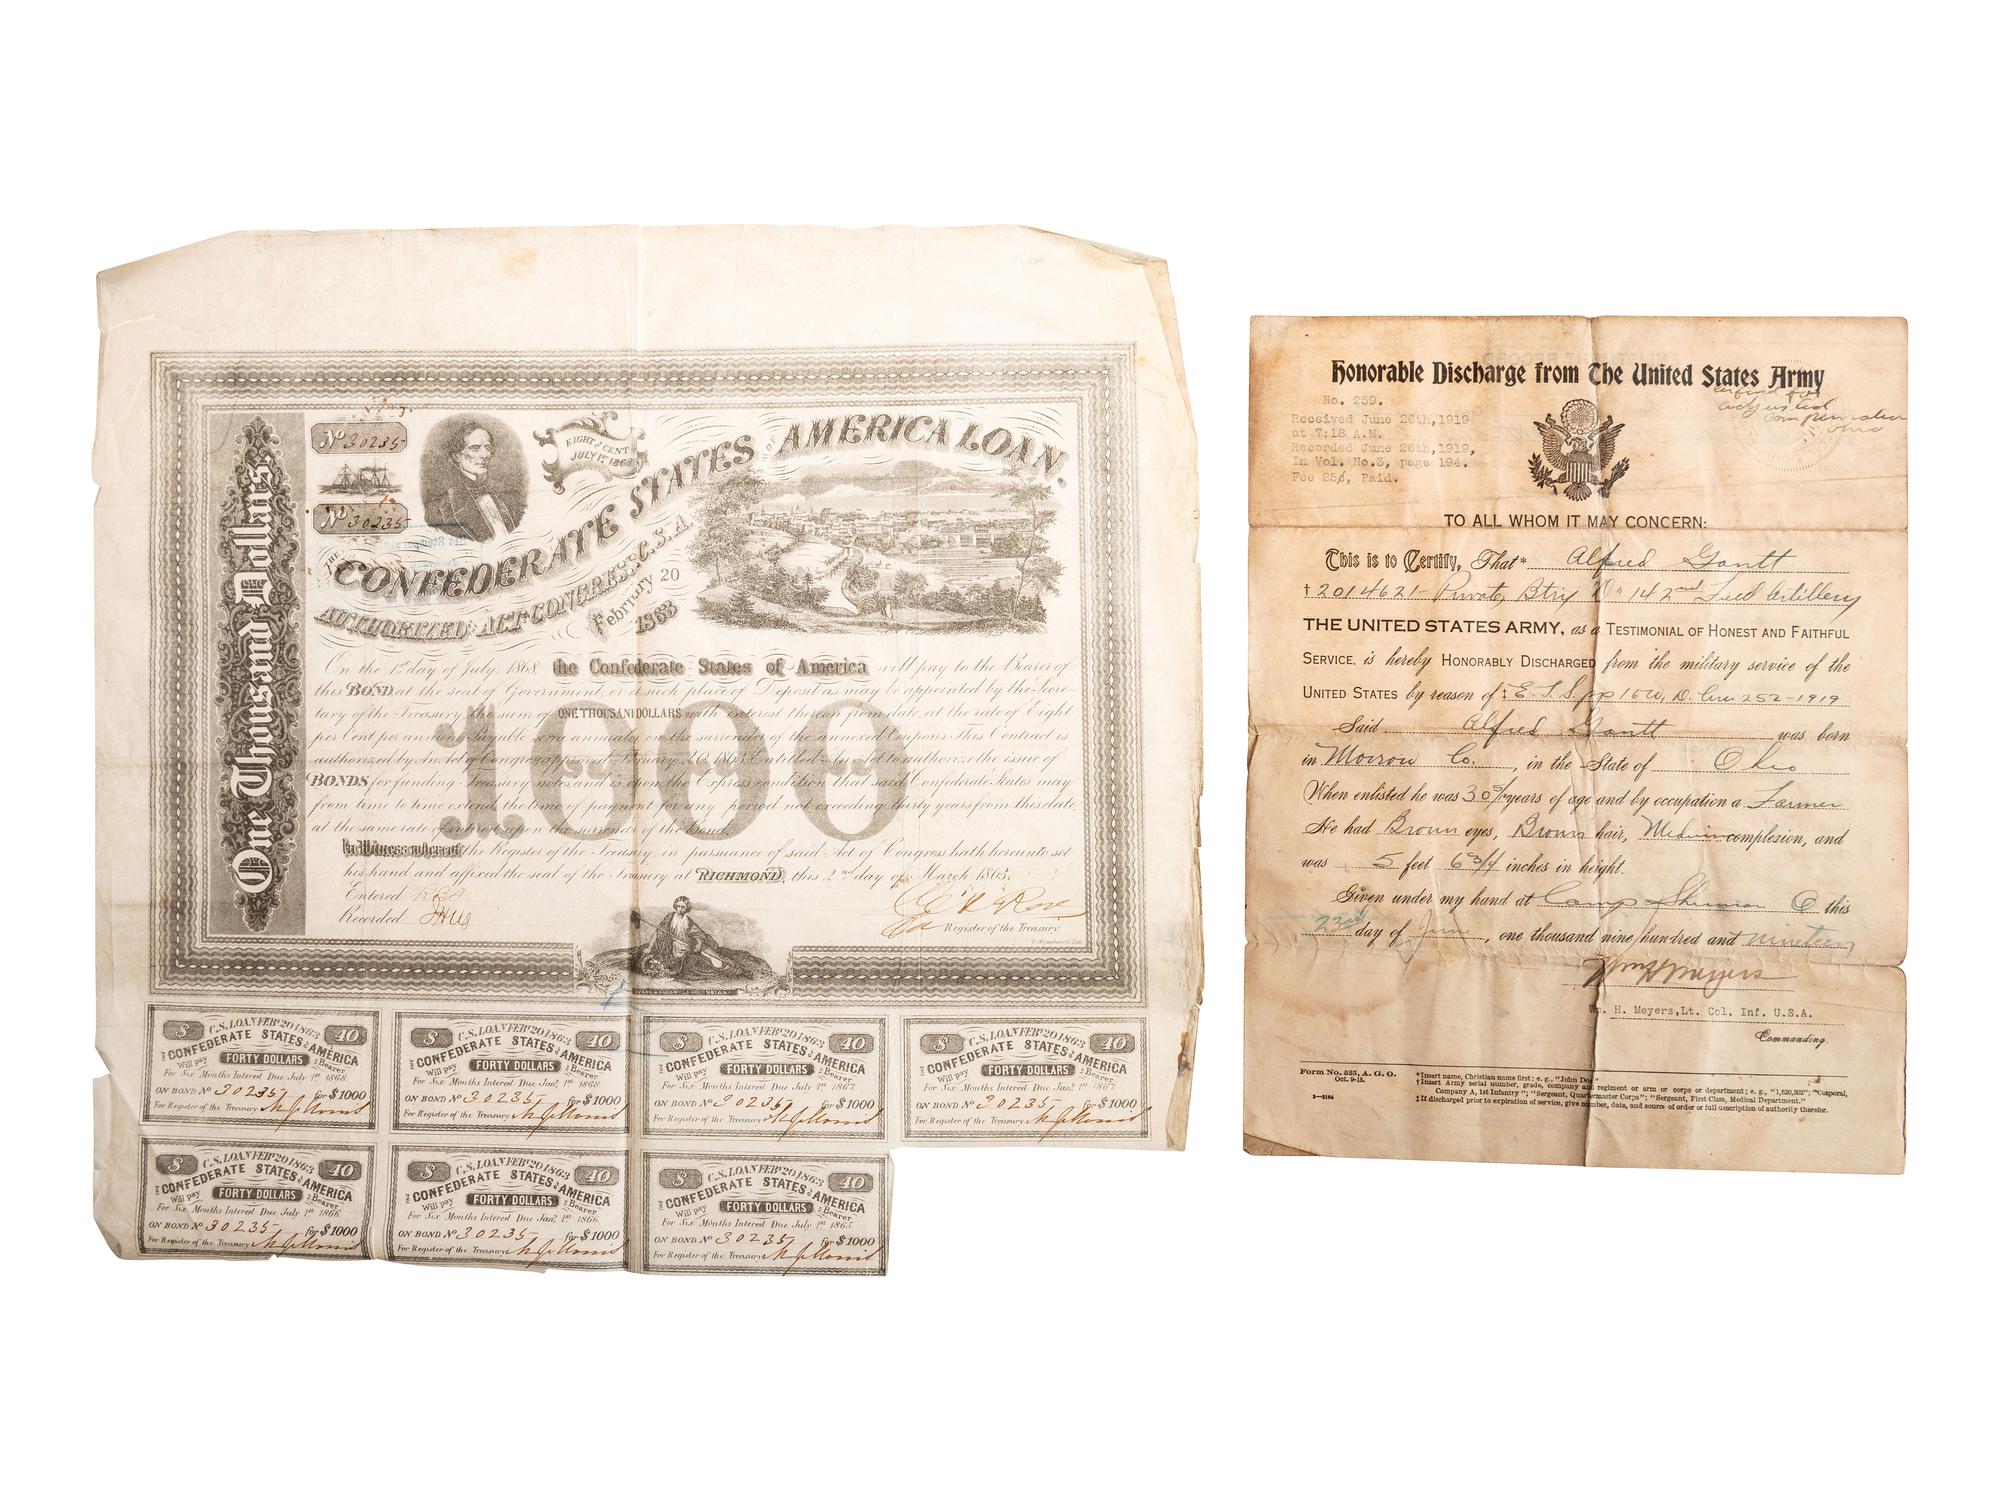 One Thousand Dollars.
No 30235
No 30235
EIGHT PER CENT
JULY 1st 1868
THE CONFEDERATE STATES OF AMERICA LOAN.
AUTHORIZED BY ACT OF CONGRESS, C.S.A.
February 20
1863
On the 1st day of July, 1868, the Confederate States of America will pay to the Bearer of
this BOND at the seat of Government, or at such place of Deposit as may be appointed by the Secre-
tary of the Treasury, the sum of ONE THOUSAND DOLLARS with interest thereon from date, at the rate of Eight
per Cent per annum Payable semi annually on the surrender of the annexed Coupons. This Contract is
authorized by An Act of Congress approved February 20, 1863 Entitled An Act to authorize the issue of
BONDS for funding Treasury notes, and is upon the Express condition that said Confederate States may
from time to time extend, the time of payment for any period not exceeding thirty years from this date,
at the same rate of interest upon the surrender of the Bond.
1000
In Witness whereof the Register of the Treasury, in pursuance of said Act of Congress hath hereunto set
his hand and affixed the seal of the Treasury at RICHMOND, this 2nd day of March 1863.
Entered
Recorded
Register of the Treasury.
$ C.S. LOAN FEBY 20 1863 40
THE CONFEDERATE STATES OF AMERICA
Will pay FORTY DOLLARS to Bearer
For Six Months Interest Due July 1st 1868.
ON BOND No 30235 for $1000
For Register of the Treasury
$ C.S. LOAN FEBY 20 1863 40
THE CONFEDERATE STATES OF AMERICA
Will pay FORTY DOLLARS to Bearer
For Six Months Interest Due Jany 1st 1868.
ON BOND No 30235 for $1000
For Register of the Treasury
$ C.S. LOAN FEBY 20 1863 40
THE CONFEDERATE STATES OF AMERICA
Will pay FORTY DOLLARS to Bearer
For Six Months Interest Due July 1st 1867.
ON BOND No 30235 for $1000
For Register of the Treasury
$ C.S. LOAN FEBY 20 1863 40
THE CONFEDERATE STATES OF AMERICA
Will pay FORTY DOLLARS to Bearer
For Six Months Interest Due Jany 1st 1867.
ON BOND No 30235 for $1000
For Register of the Treasury
$ C.S. LOAN FEBY 20 1863 40
THE CONFEDERATE STATES OF AMERICA
Will pay FORTY DOLLARS to Bearer
For Six Months Interest Due July 1st 1866.
ON BOND No 30235 for $1000
For Register of the Treasury
$ C.S. LOAN FEBY 20 1863 40
THE CONFEDERATE STATES OF AMERICA
Will pay FORTY DOLLARS to Bearer
For Six Months Interest Due Jany 1st 1866.
ON BOND No 30235 for $1000
For Register of the Treasury
$ C.S. LOAN FEBY 20 1863 40
THE CONFEDERATE STATES OF AMERICA
Will pay FORTY DOLLARS to Bearer
For Six Months Interest Due July 1st 1865.
ON BOND No 30235 for $1000
For Register of the Treasury
Honorable Discharge from The United States Army
No. 259.
Received June 26th, 1919
at 7:18 A.M.
Recorded June 26th, 1919,
In Vol. No.3, page 194.
Fee 25¢, Paid.
adjusted
compensation
Ohio
TO ALL WHOM IT MAY CONCERN:
This is to Certify, That* Alfred Gantt
† 2014621 Private, Btry "D" 142nd Field Artillery
THE UNITED STATES ARMY, as a TESTIMONIAL OF HONEST AND FAITHFUL
SERVICE, is hereby HONORABLY DISCHARGED from the military service of the
UNITED STATES by reason of ‡ E.T.S. Cir 252-1919
Said Alfred Gantt was born
in Morrow Co., in the State of Ohio
When enlisted he was 30 years of age and by occupation a Farmer
He had Brown eyes, Brown hair, Medium complexion, and
was 5 feet 6 3/4 inches in height.
Given under my hand at Camp Sherman O this
23d day of June, one thousand nine hundred and nineteen
Wm H Meyers
Wm. H. Meyers, Lt. Col. Inf. U.S.A.
Commanding.
Form No. 525, A. G. O.
Oct. 9-18.
3—3164
*Insert name, Christian name first; e. g., "John Doe."
†Insert Army serial number, grade, company and regiment or arm or corps or department; e. g., "1,620,302"; "Corporal,
Company A, 1st Infantry"; "Sergeant, Quartermaster Corps"; "Sergeant, First Class, Medical Department."
‡If discharged prior to expiration of service, give number, date, and source of order or full description of authority therefor.